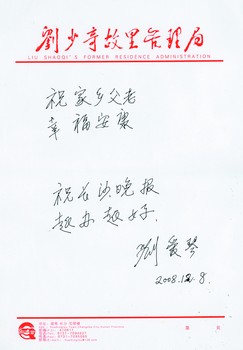 劉少奇故里管理局
LIU SHAOQI'S FORMER RESIDENCE ADMINISTRATION
祝家乡父老
幸福安康
祝长沙晚报
越办越好.
刘爱琴
2008.12.8.